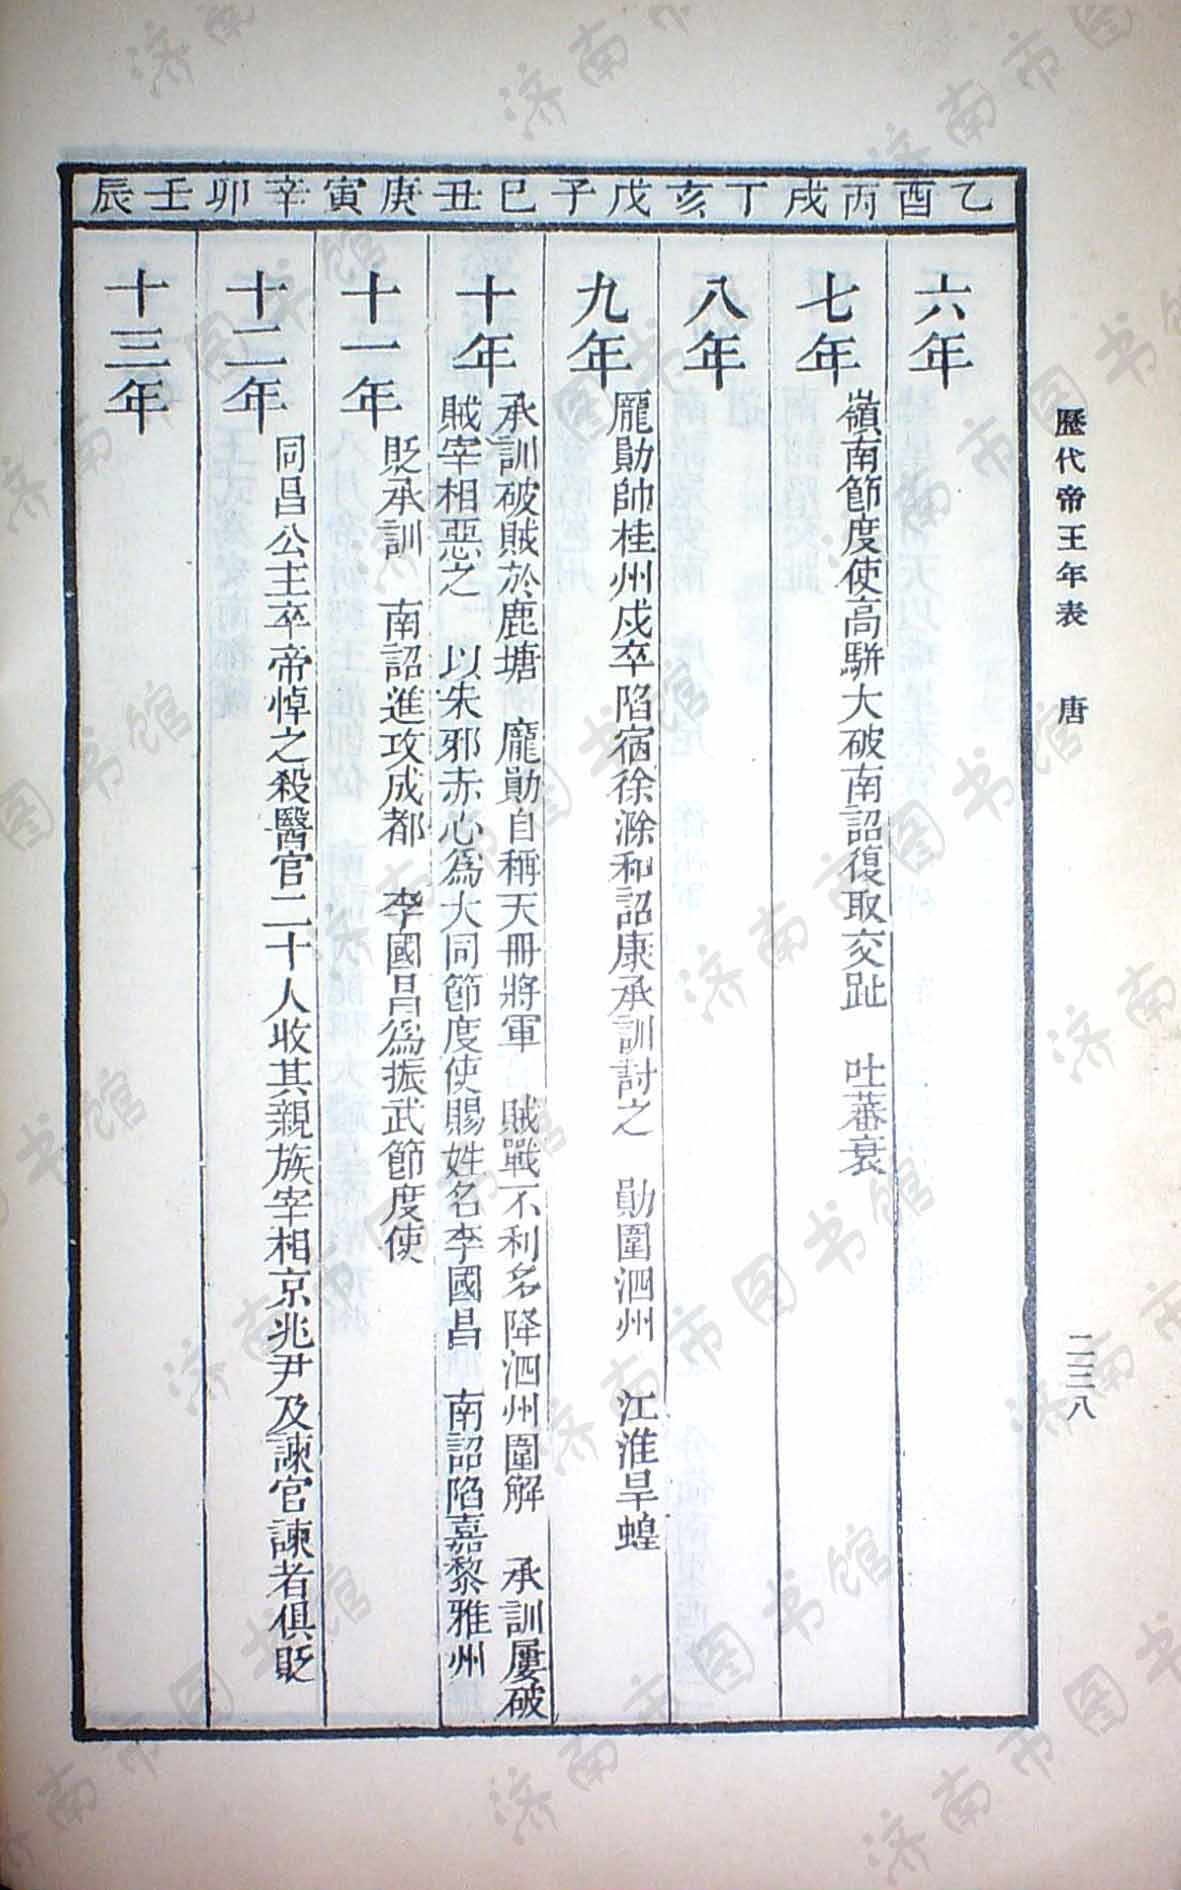 歷代帝王年表 唐
二三八
乙酉丙戌丁亥戊子己丑庚寅辛卯壬辰
六年
七年 嶺南節度使高駢大破南詔復取交趾 吐蕃衰
八年
九年 龐勛帥桂州戍卒陷宿徐滁和詔康承訓討之 勛圍泗州 江淮旱蝗
十年 承訓破賊於鹿塘 龐勛自稱天冊將軍 賊戰不利多降泗州圍解 承訓屢破
賊宰相惡之 以朱邪赤心爲大同節度使賜姓名李國昌 南詔陷嘉黎雅州
十一年 貶承訓 南詔進攻成都 李國昌爲振武節度使
十二年 同昌公主卒帝悼之殺醫官二十人收其親族宰相京兆尹及諫官諫者俱貶
十三年
济南市图书馆